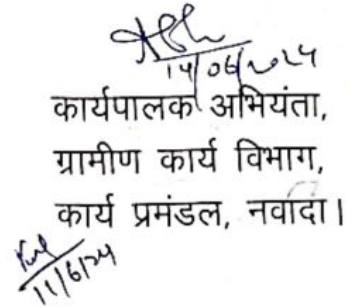 14/06/2024
कार्यपालक अभियंता,
ग्रामीण कार्य विभाग,
कार्य प्रमंडल, नवादा।
11/6/24